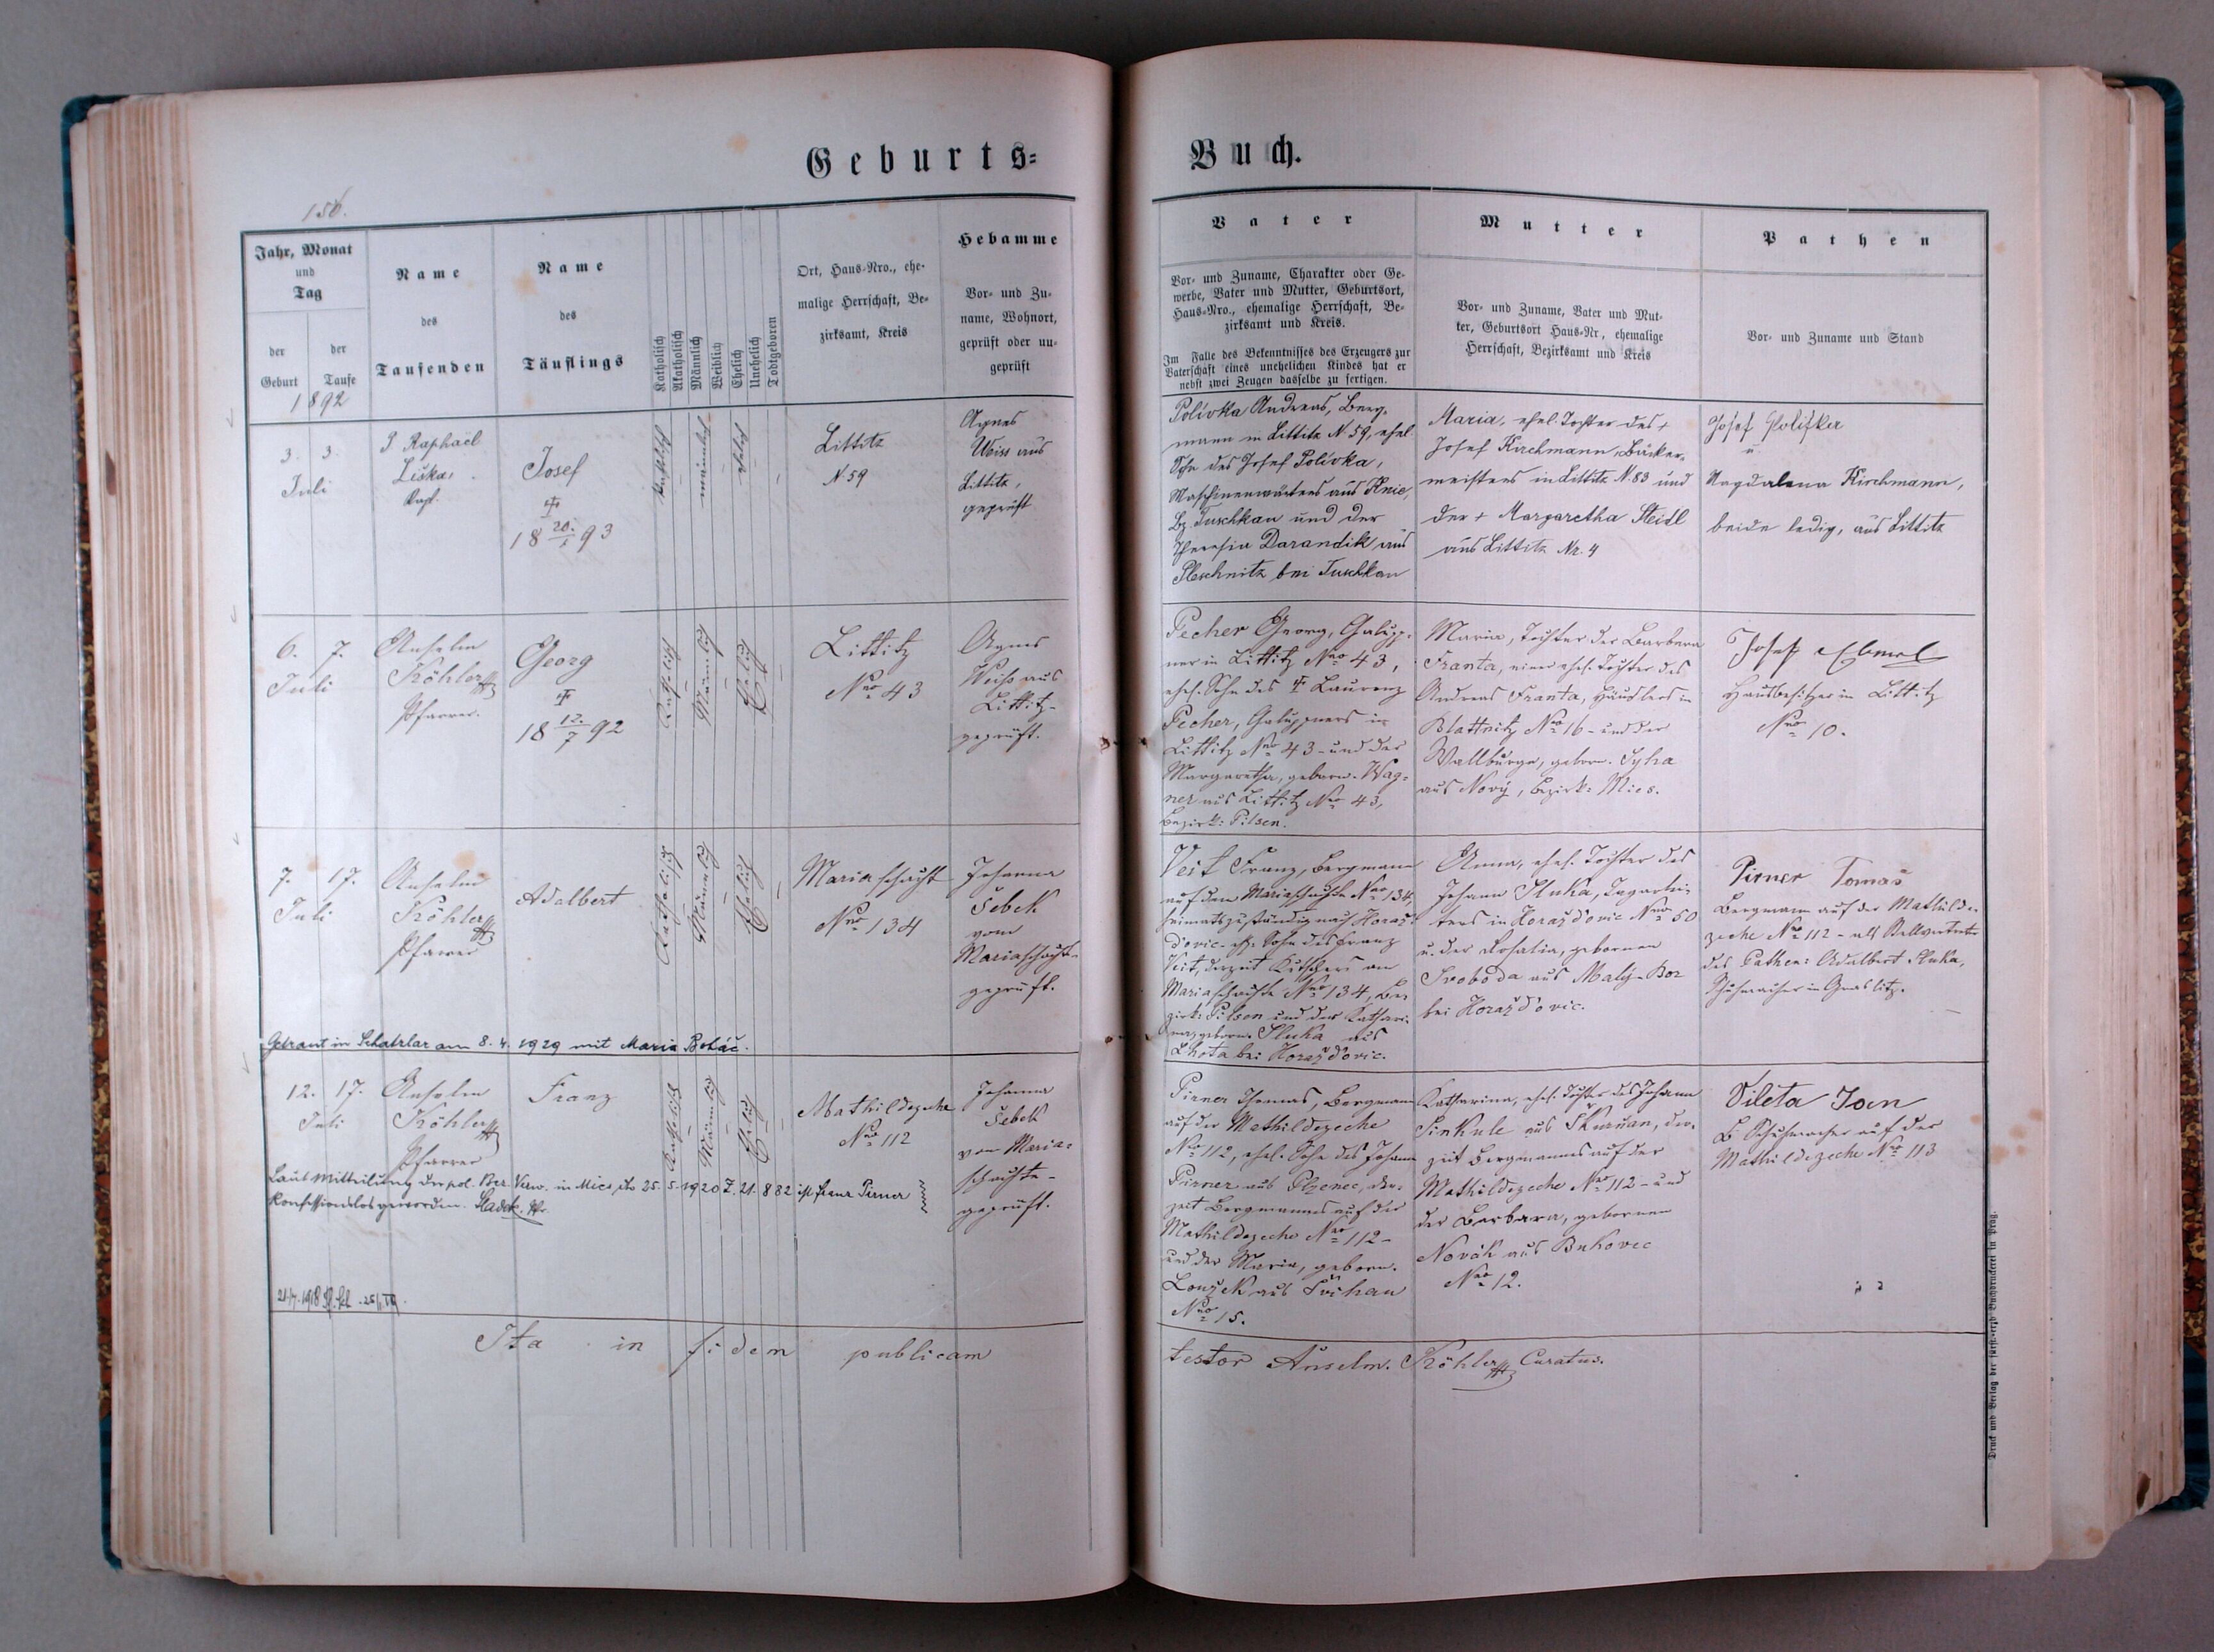 Geburts=
Buch.
156.
Jahr, Monat
und
Tag
der
Geburt
der
Taufe
1892
Name
des
Taufenden
Name
des
Täuflings
Katholisch
Akatholisch
Männlich
Weiblich
Ehelich
Unehelich
Todtgeboren
Ort, Haus-Nro., ehe-
malige Herrschaft, Be-
zirksamt, Kreis
Hebamme
Vor- und Zu-
name, Wohnort,
geprüft oder un-
geprüft
Vater
Vor- und Zuname, Charakter oder Ge-
werbe, Vater und Mutter, Geburtsort,
Haus-Nro., ehemalige Herrschaft, Be-
zirksamt und Kreis.
Im Falle des Bekenntnisses des Erzeugers zur
Vaterschaft eines unehelichen Kindes hat er
nebst zwei Zeugen dasselbe zu fertigen.
Mutter
Vor- und Zuname, Vater und Mut-
ter, Geburtsort Haus-Nr, ehemalige
Herrschaft, Bezirksamt und Kreis
Pathen
Vor- und Zuname und Stand
3. 3.
Juli
P. Raphael
Liška,
Kapl.
Josef
†
18 20./1 93
katholisch
männlich
ehelich
Littitz
N. 59
Agnes
Weiss aus
Littitz,
geprüft
Polívka Andreas, Berg-
mann in Littitz N. 59, ehel.
Sohn des Josef Polívka,
Maschinenwärters aus Knie,
Bz. Tuschkau und der
Theresia Darandik aus
Pleschnitz bei Tuschkau
Maria, ehel. Tochter des +
Josef Kirchmann, Bäcker-
meisters in Littitz N. 83 und
der + Margaretha Steidl
aus Littitz Nr. 4
Josef Polifka
u.
Magdalena Kirchmann,
beide ledig, aus Littitz
6. 7.
Juli
Anselm
Köhler
Pfarrer.
Georg
†
18 12./7 92
Katholisch
Männlich
Ehelich
Littitz
Nro 43
Agnes
Weiß aus
Littitz-
geprüft.
Pecher Georg, Galupp-
ner in Littitz Nro 43,
ehel. Sohn des † Laurenz
Pecher, Galuppners in
Littitz Nro 43 - und der
Margaretha, geborn. Wag-
ner aus Littitz Nro 43,
Bezirk: Pilsen.
Maria, Tochter der Barbara
Franta, einer ehel. Tochter des
Andreas Franta, Häuslers in
Blattnitz Nro 16 - und der
Wallburga, geborn. Syha
aus Nový, Bezirk: Mies.
Josef
Hausbesitzer in Littitz
Nro 10.
7. 17.
Juli
Anselm
Köhler
Pfarrer
Adalbert
Katholisch
Männlich
Ehelich
Mariaschacht
Nro 134
Johanna
Šebek
vom
Mariaschacht-
geprüft.
Veit Franz, Bergmann
auf dem Mariaschachte Nro 134,
heimatszuständig nach Horaž-
dovic - ehl. Sohn des Franz
Veit, derzeit Kutschers am
Mariaschachte Nro 134, Be-
zirk: Pilsen und der Kathari-
na, geborn. Sluka aus
Lhota bei Horažďovic.
Anna, ehel. Tochter des
Johann Sluka, Tagarbei-
ters in Horažďovic Nro 50
u. der Rosalia, gebornen
Svoboda aus Malý-Bor
bei Horažďovic.
Pirner Tomaš
Bergmann auf der Mathilde-
zeche Nro 112 - als Stellvertreter
des Pathen: Adalbert Sluka,
Schuhmacher in Graslitz.
Getraut in Schatzlar am 8. 4. 1929 mit Maria Boháč.
12. 17.
Juli
Anselm
Köhler
Pfarrer
Franz
Katholisch
Männlich
Ehelich
Mathildezeche
Nro 112
Johanna
Šebek
vom Maria-
schachte-
geprüft.
Pirner Thomas, Bergmann
auf der Mathildezeche
Nro 112, ehel. Sohn des Johann
Pirner aus Plzenec, der-
zeit Bergmannes auf der
Mathildezeche Nro 112 -
und der Maria, geborn.
Louzek aus Švihau
Nro 15.
Katharina, ehel. Tochter des Johann
Sinkule aus Skurňan, der-
zeit Bergmannes auf der
Mathildezeche Nro 112 - und
der Barbara, gebornen
Novák aus Bukovec
Nro 12.
Vileta Jan
Schuhmacher auf der
Mathildezeche Nro 113
Laut Mitteilung der pol. Bez. Verw. in Mies dto 25. 5. 1920 Z. 21.882 ist Franz Pirner
konfessionslos geworden. Sladek, Pfr.
Ita in fidem publicam
testor Anselm. Köhler Curatus.
Druck und Verlag der fürst-erzb Buchdruckerei in Prag.